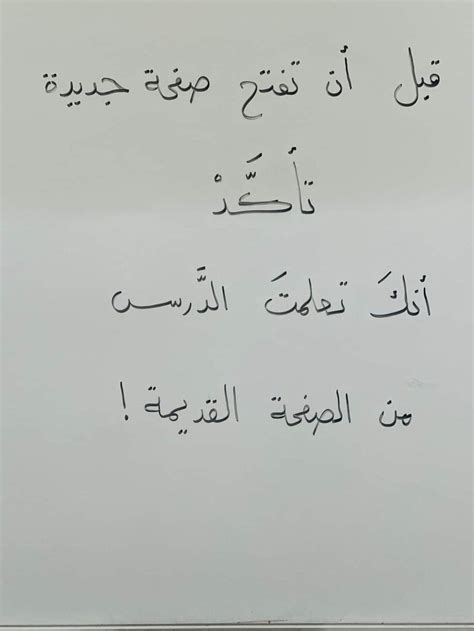 قبل أن تفتح صفحة جديدة
تأكَّدْ
أنكَ تعلمتَ الدَّرس
من الصفحة القديمة !